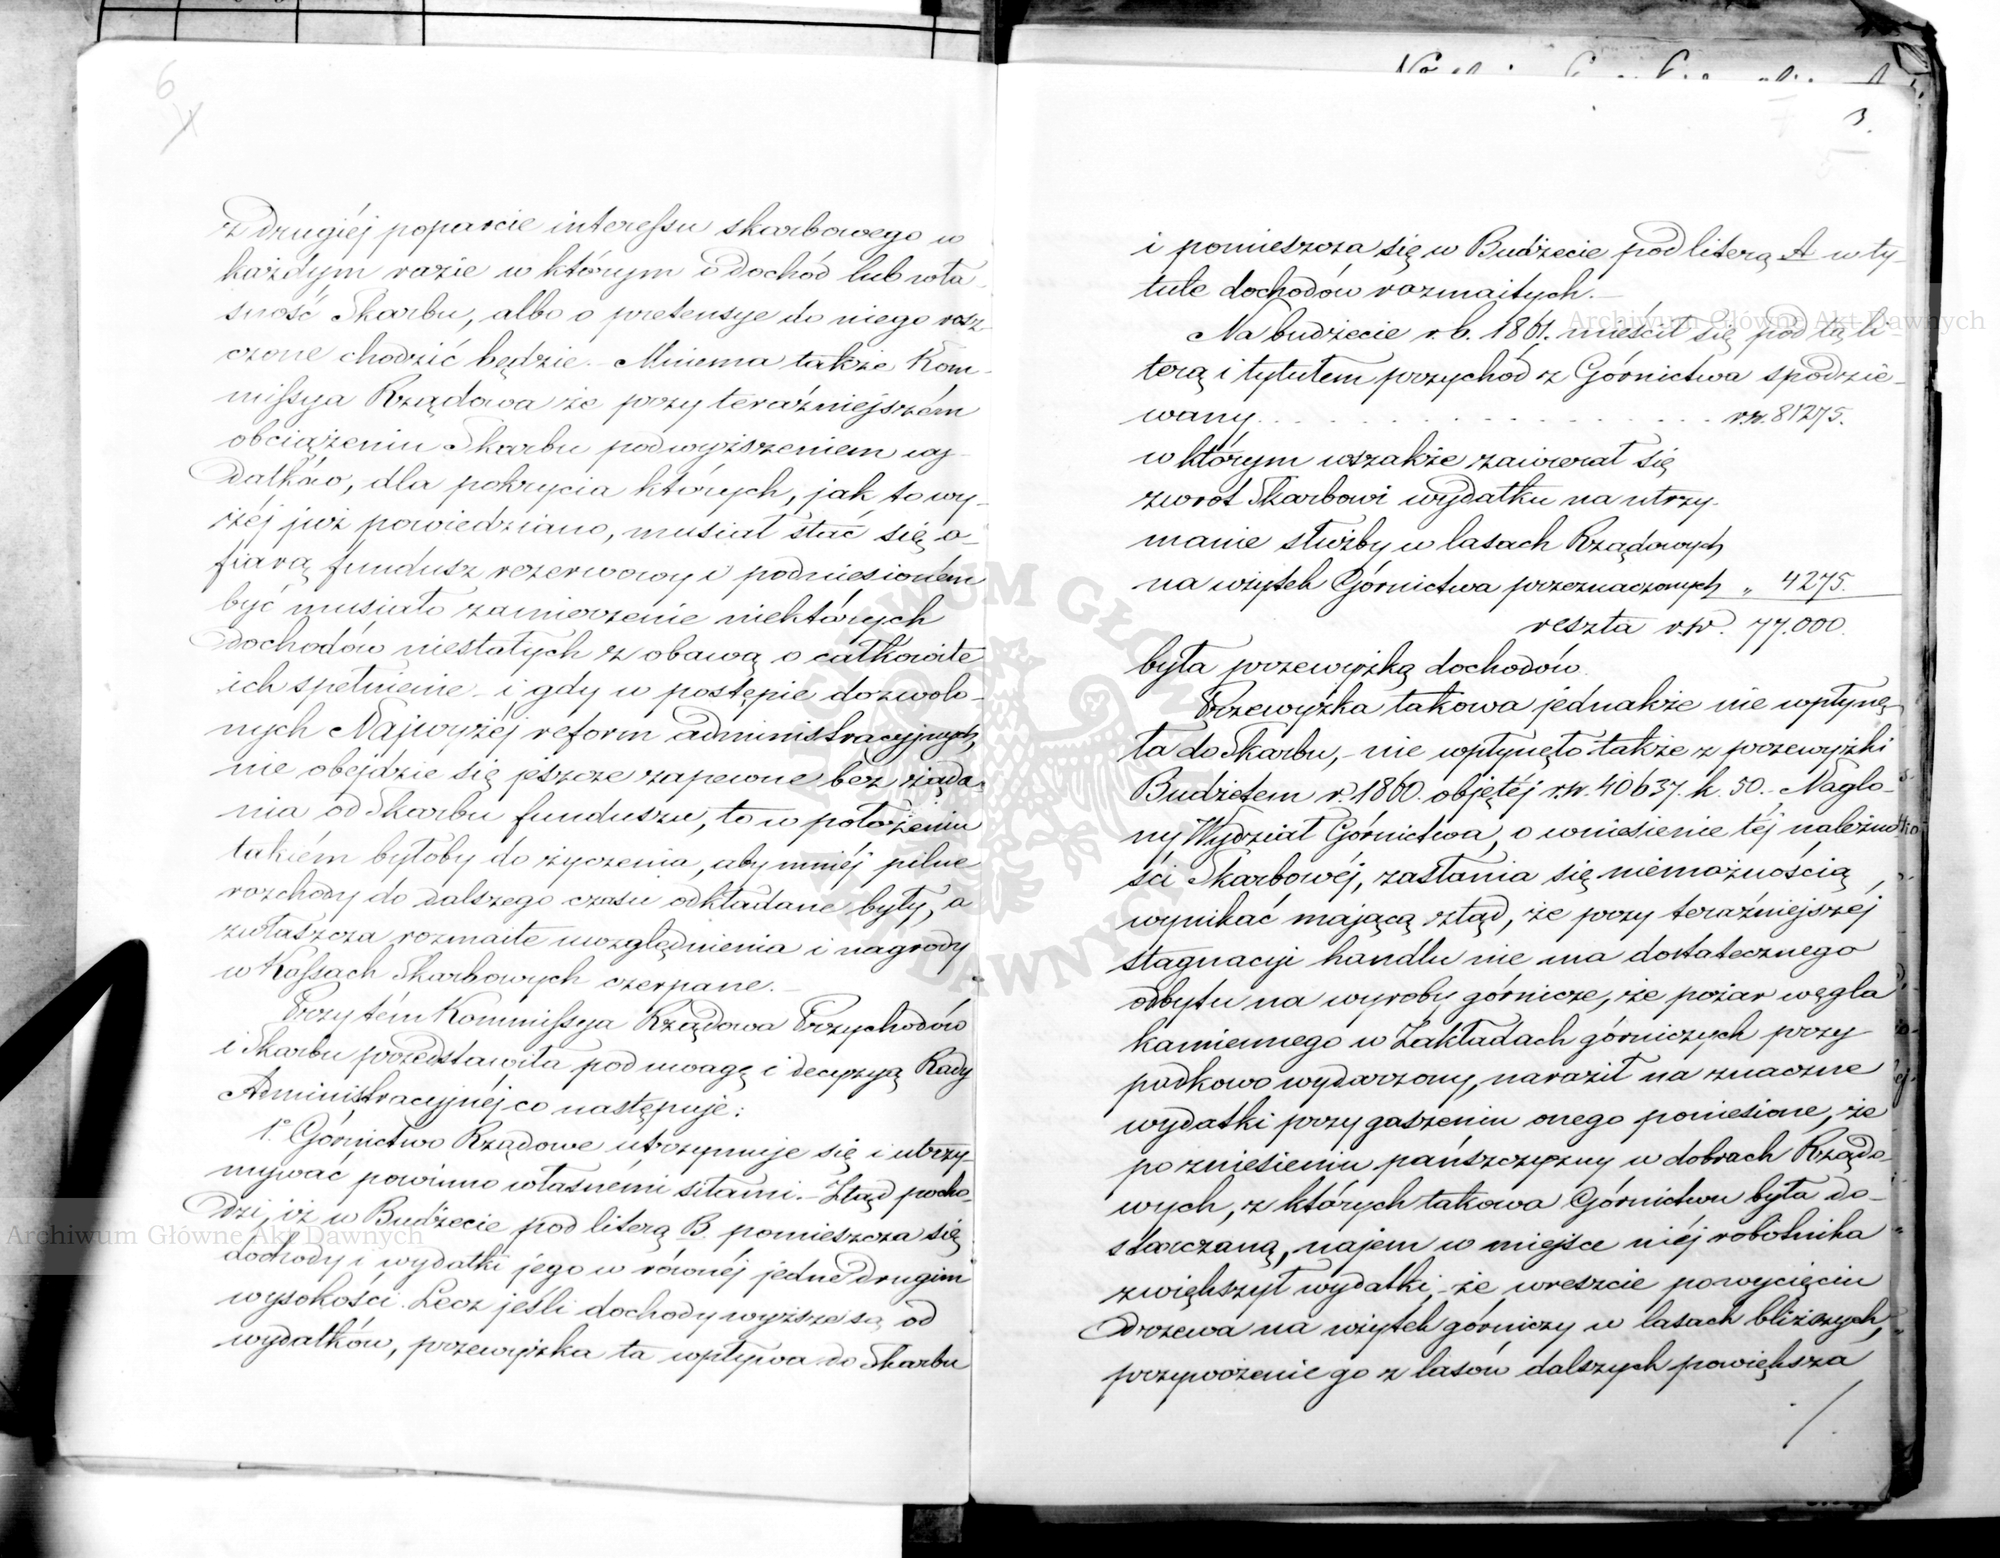 6
z drugiéj poparcie interessu skarbowego w
każdym razie w którym o dochód lub wła-
sność Skarbu, albo o pretensye do niego rosz-
czone chodzić będzie. Mniema także Kom-
missya Rządowa że przy teraźniejszém
obciążeniu Skarbu podwyższeniem wy-
datków, dla pokrycia których, jak to wy-
żéj już powiedziano, musiał stać się o-
fiarą fundusz rezerwowy i podniesioném
być musiało zamierzenie niektórych
dochodów niestałych z obawą o całkowite
ich spełnienie - i gdy w postępie dozwolo-
nych Najwyżéj reform administracyjnych,
nie obejdzie się jeszcze zapewne bez żąda-
nia od Skarbu funduszu, to w położeniu
takiém byłoby do życzenia, aby mniéj pilne
rozchody do dalszego czasu odkładane były, a
zwłaszcza rozmaite uwzględnienia i nagrody
w Kassach Skarbowych czerpane.-
Przytém Kommissya Rządowa Przychodów
i Skarbu przedstawiła pod uwagę i decyzyą Rady
Administracyjnéj co następuje:
1.° Górnictwo Rządowe utrzymuje się i utrzy-
mywać powinno własnémi siłami.- Ztąd pocho-
dzi, iż w Budżecie pod literą B. pomieszcza się
dochody i wydatki jego w równéj jedne drugim
wysokości. Lecz jeśli dochody wyższe są od
wydatków, przewyżka ta wpływa do Skarbu
3.
i pomieszcza się w Budżecie pod literą A w ty-
tule dochodów rozmaitych.-
Na budżecie r. b. 1861. mieścił się pod tą li-
terą i tytułem przychód z Górnictwa spodzie-
wany . . . . . . . . . . . . . . . . . rs. 81275.
w którym wszakże zawierał się
zwrot Skarbowi wydatku na utrzy-
manie służby w lasach Rządowych
na użytek Górnictwa przeznaczonych „ 4275.
reszta rs. 77.000.
była przewyżką dochodów.
Przewyżka takowa jednakże nie wpłynę-
ła do Skarbu, - nie wpłynęło także z przewyżki
Budżetem r. 1860. objętéj rs. 40637. k. 50. - Naglo-
ny Wydział Górnictwa, o wniesienie téj należno-
ści Skarbowéj, zasłania się niemożnością
wynikać mającą ztąd, że przy teraźniejszéj
stagnacyi handlu nie ma dostatecznego
odbytu na wyroby górnicze, że pożar węgla
kamiennego w Zakładach górniczych przy-
padkowo wydarzony, naraził na znaczne
wydatki przy gaszeniu onego poniesione, że
po zniesieniu pańszczyzny w dobrach Rządo-
wych, z których takowa Górnictwu była do-
starczaną, najem w miejsce niéj robotnika
zwiększył wydatki, - że wreszcie po wycięciu
drzewa na użytek górniczy w lasach bliższych,
przywożenie go z lasów dalszych powiększa
Archiwum Główne Akt Dawnych
Archiwum Główne Akt Dawnych
ARCHIWUM GŁÓWNE AKT DAWNYCH